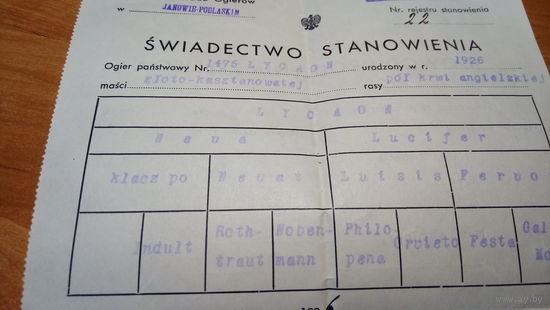 Ogierów
w JANOWIE-PODLASKIM
Nr. rejestru stanowienia
22
ŚWIADECTWO STANOWIENIA
Ogier państwowy Nr. 1475 LYCAON urodzony w r. 1926
maści złoto-kasztanowatej rasy pół krwi angielskiej
LYCAON
Neva Lucifer
klacz po Nevat Luisis Fervo
Indult Roth- Noben- Philo Orvieto Festa Gal
traut mann pena Mo
www.ay.by